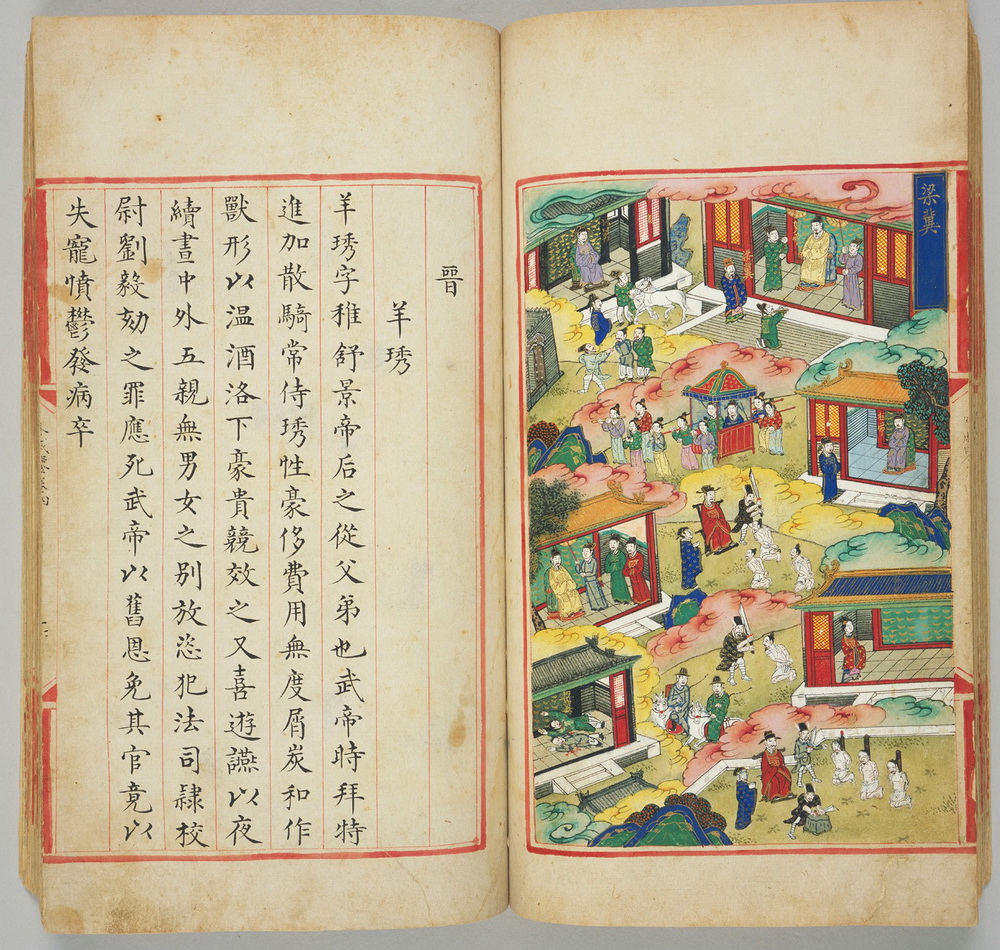 梁冀
梁冀
晉
羊琇
羊琇字稚舒景帝后之從父弟也武帝時拜特
進加散騎常侍琇性豪侈費用無度屑炭和作
獸形以温酒洛下豪貴競效之又喜遊讌以夜
續晝中外五親無男女之別放恣犯法司隷校
尉劉毅劾之罪應死武帝以舊恩免其官竟以
失寵憤鬱發病卒